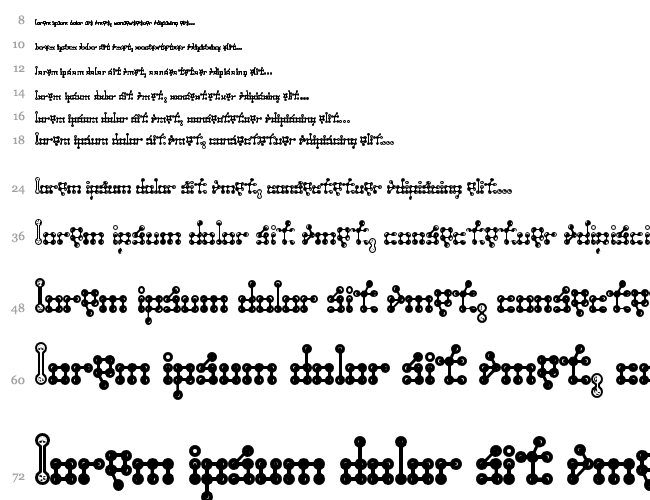 8 lorem ipsum dolor sit amet, consectetuer adipiscing elit...
10 lorem ipsum dolor sit amet, consectetuer adipiscing elit...
12 lorem ipsum dolor sit amet, consectetuer adipiscing elit...
14 lorem ipsum dolor sit amet, consectetuer adipiscing elit...
16 lorem ipsum dolor sit amet, consectetuer adipiscing elit...
18 lorem ipsum dolor sit amet, consectetuer adipiscing elit...
24 lorem ipsum dolor sit amet, consectetuer adipiscing elit...
36 lorem ipsum dolor sit amet, consectetuer
48 lorem ipsum dolor sit amet,
60 lorem ipsum dolor sit amet,
72 lorem ipsum dolor sit